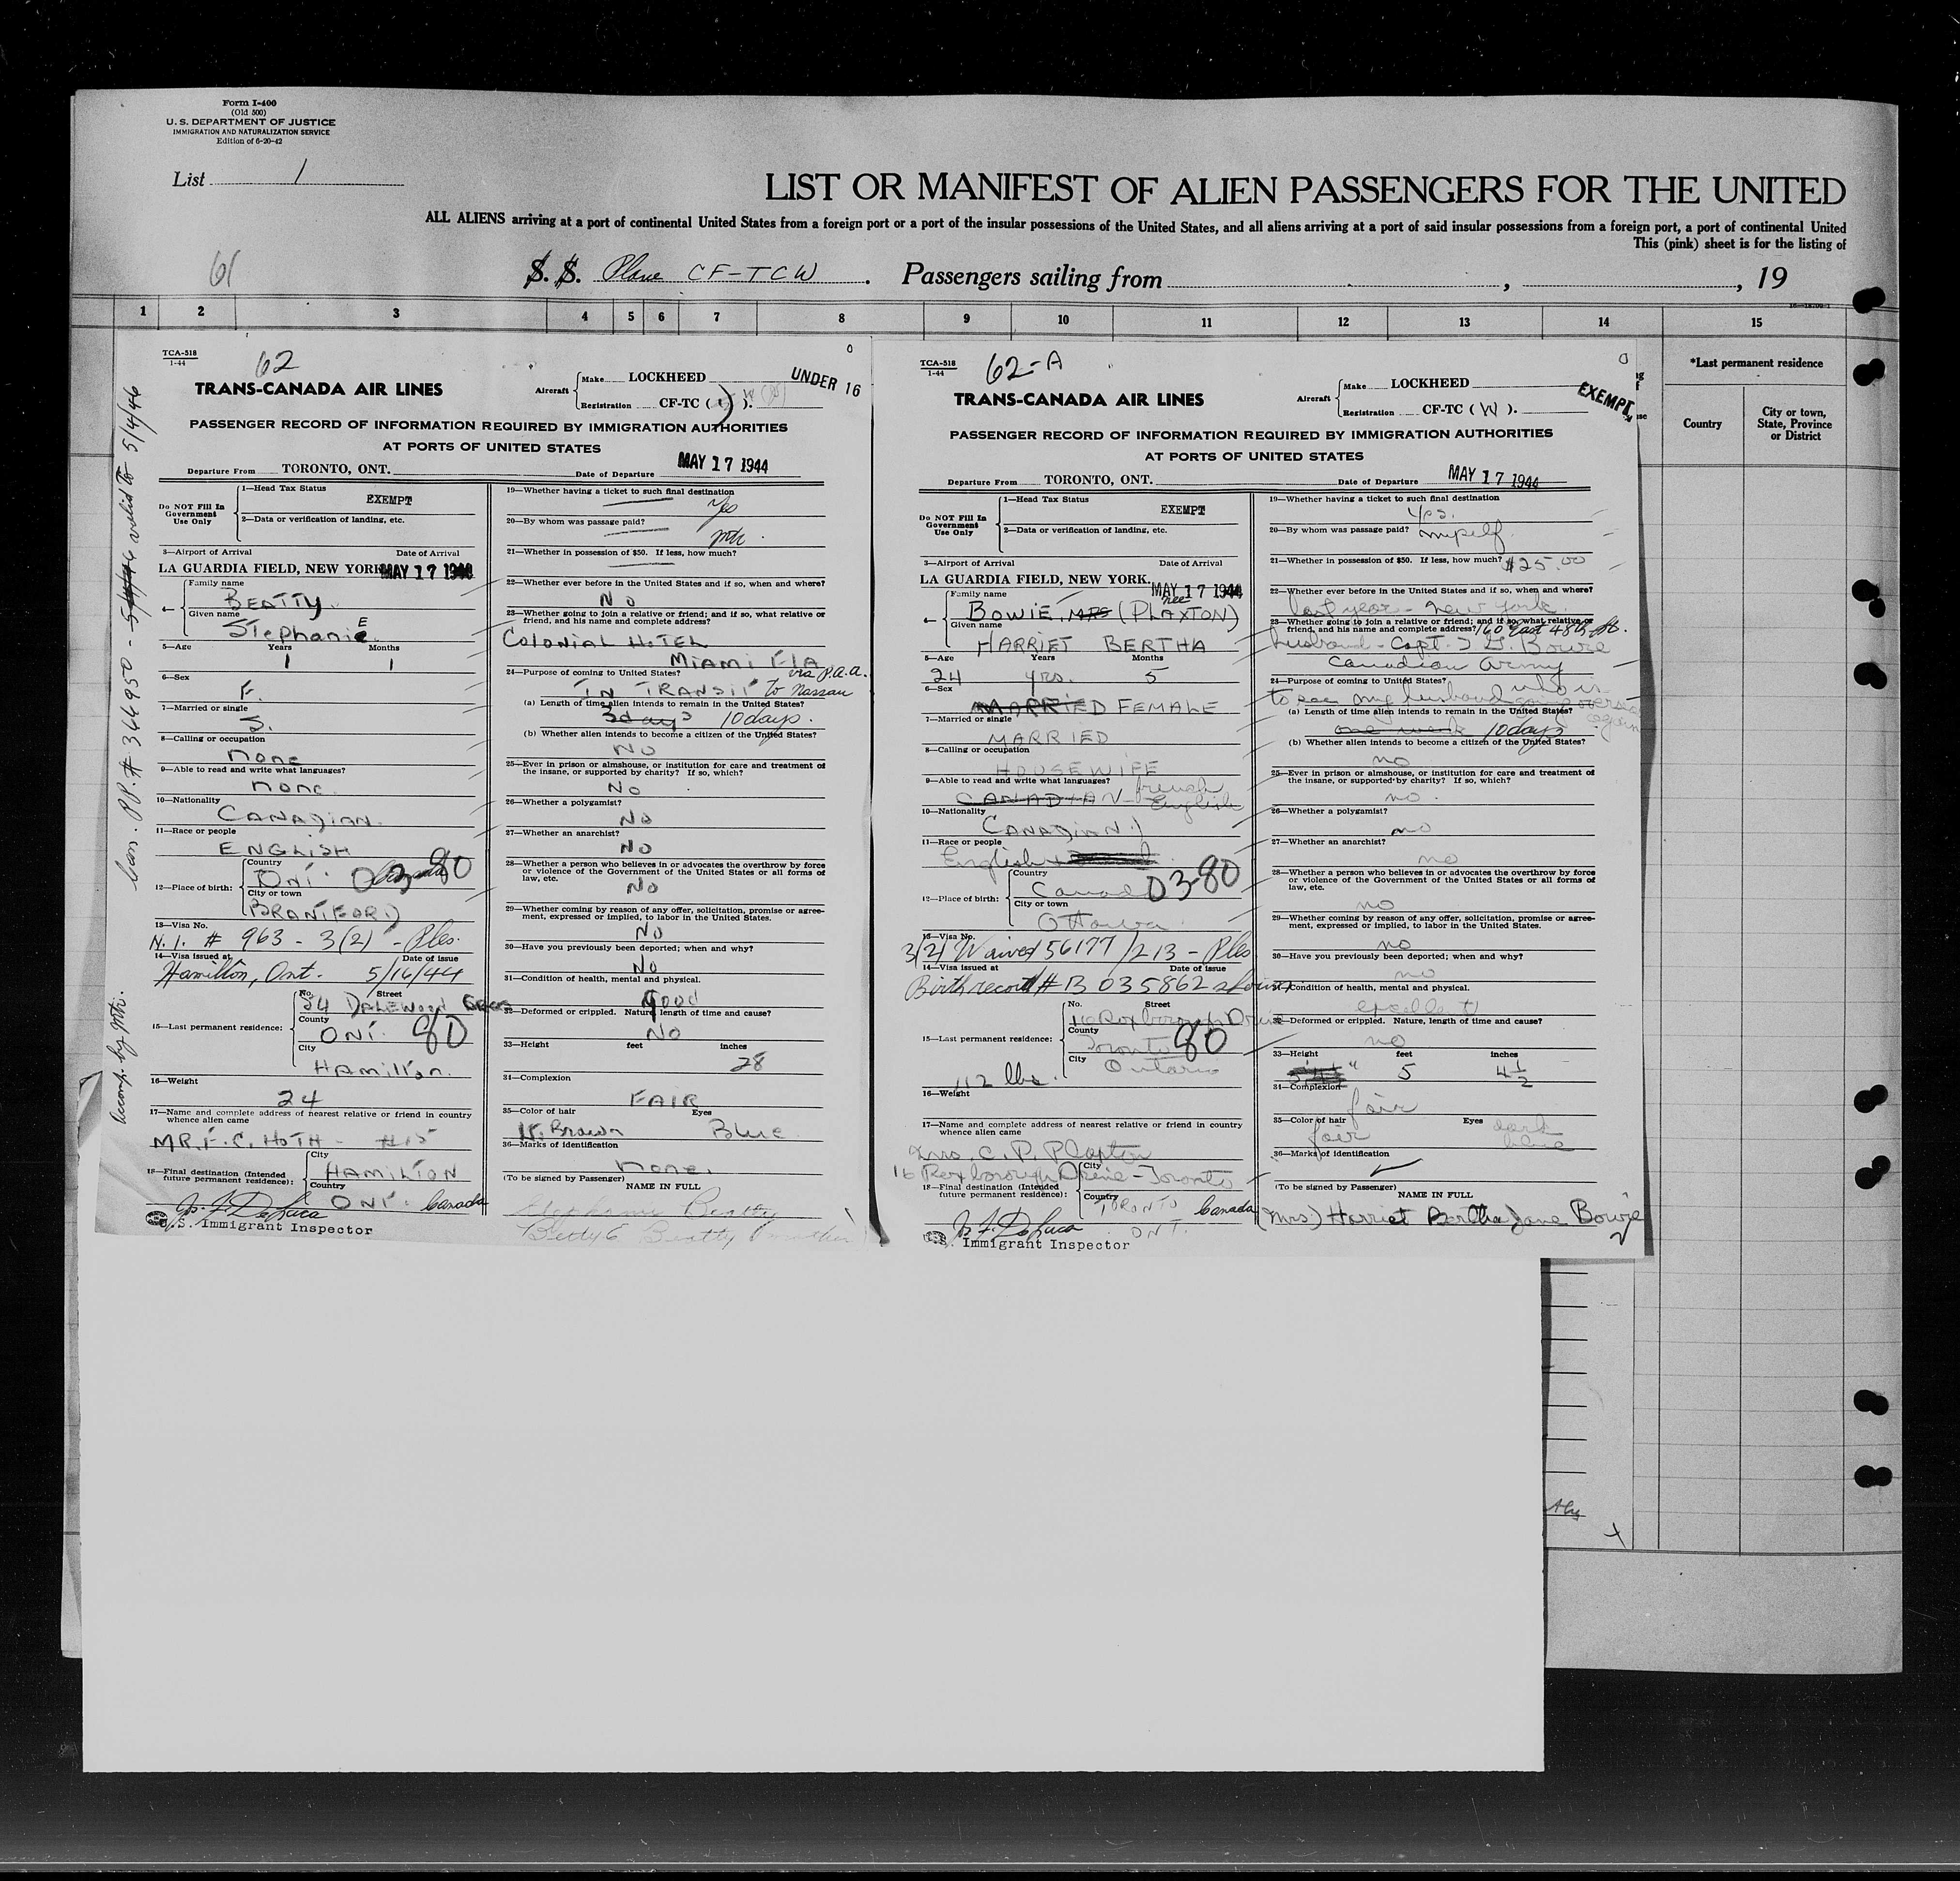 Form I-400
(Old 500)
U. S. DEPARTMENT OF JUSTICE
IMMIGRATION AND NATURALIZATION SERVICE
Edition of 6-20-42
List 1
LIST OR MANIFEST OF ALIEN PASSENGERS FOR THE UNITED
ALL ALIENS arriving at a port of continental United States from a foreign port or a port of the insular possessions of the United States, and all aliens arriving at a port of said insular possessions from a foreign port, a port of continental United
This (pink) sheet is for the listing of
61
S. S. Plane CF-TCW. Passengers sailing from , , 19
1 2 3 4 5 6 7 8 9 10 11 12 13 14 15
*Last permanent residence
Country
City or town, State, Province or District
Can. PP. # 366950 - valid to 5/4/46
Accomp. by mtr.
TCA-518
1-44
62
TRANS-CANADA AIR LINES
Aircraft
Make LOCKHEED
Registration CF-TC ( ).
UNDER 16
PASSENGER RECORD OF INFORMATION REQUIRED BY IMMIGRATION AUTHORITIES
AT PORTS OF UNITED STATES
Departure From TORONTO, ONT. Date of Departure MAY 17 1944
Do NOT Fill In Government Use Only
1—Head Tax Status EXEMPT
2—Data or verification of landing, etc.
3—Airport of Arrival Date of Arrival
LA GUARDIA FIELD, NEW YORK MAY 17 1944
4— Family name BEATTY
Given name Stephanie E.
5—Age Years Months
1 1
6—Sex
F.
7—Married or single
S.
8—Calling or occupation
none
9—Able to read and write what languages?
none
10—Nationality
CANADIAN
11—Race or people
ENGLISH
12—Place of birth: Country
ONT. Canada 03-80
City or town
BRANTFORD
13—Visa No.
N.I. # 963 - 3(2) - Ples.
14—Visa issued at Date of issue
Hamilton, Ont. 5/16/44
15—Last permanent residence: No. Street
54 DALEWOOD
County
ONT. 80
City
Hamilton.
16—Weight
24
17—Name and complete address of nearest relative or friend in country whence alien came
MR. F. C. HOTH - #15
18—Final destination (Intended future permanent residence): City
HAMILTON
Country
ONT. Canada
U.S. Immigrant Inspector
19—Whether having a ticket to such final destination
Yes
20—By whom was passage paid?
mtr.
21—Whether in possession of $50. If less, how much?
22—Whether ever before in the United States and if so, when and where?
No
23—Whether going to join a relative or friend; and if so, what relative or friend, and his name and complete address?
COLONIAL HOTEL
MIAMI FLA
24—Purpose of coming to United States? via P.A.A.
IN TRANSIT to Nassau
(a) Length of time alien intends to remain in the United States?
3 days 10 days.
(b) Whether alien intends to become a citizen of the United States?
NO
25—Ever in prison or almshouse, or institution for care and treatment of the insane, or supported by charity? If so, which?
No
26—Whether a polygamist?
No
27—Whether an anarchist?
No
28—Whether a person who believes in or advocates the overthrow by force or violence of the Government of the United States or all forms of law, etc.
No
29—Whether coming by reason of any offer, solicitation, promise or agreement, expressed or implied, to labor in the United States.
No
30—Have you previously been deported; when and why?
No
31—Condition of health, mental and physical.
Good
32—Deformed or crippled. Nature, length of time and cause?
No
33—Height feet inches
28
34—Complexion
FAIR
35—Color of hair Eyes
lt. Brown Blue
36—Marks of identification
none.
(To be signed by Passenger)
NAME IN FULL
Stephanie Beatty
Beatty
TCA-518
1-44
62-A
TRANS-CANADA AIR LINES
Aircraft
Make LOCKHEED
Registration CF-TC ( W ).
EXEMPT
PASSENGER RECORD OF INFORMATION REQUIRED BY IMMIGRATION AUTHORITIES
AT PORTS OF UNITED STATES
Departure From TORONTO, ONT. Date of Departure MAY 17 1944
Do NOT Fill In Government Use Only
1—Head Tax Status EXEMPT
2—Data or verification of landing, etc.
3—Airport of Arrival Date of Arrival
LA GUARDIA FIELD, NEW YORK. MAY 17 1944
4— Family name nee
BOWIE, MRS (PLAXTON)
Given name
HARRIET BERTHA
5—Age Years Months
24 yrs. 5
6—Sex
MARRIED FEMALE
7—Married or single
MARRIED
8—Calling or occupation
HOUSEWIFE
9—Able to read and write what languages?
CANADIAN - french English
10—Nationality
CANADIAN
11—Race or people
English
12—Place of birth: Country
Canada 03-80
City or town
Ottawa
13—Visa No.
3(2) Waived 56177/213 - Ples
14—Visa issued at Date of issue
Birth record # B 035862 shown
15—Last permanent residence: No. Street
16 Roxborough Drive
County
Toronto 80
City
Ontario
112 lbs.
16—Weight
17—Name and complete address of nearest relative or friend in country whence alien came
Mrs. C. P. Plaxton
16 Roxborough Drive - Toronto
18—Final destination (Intended future permanent residence): City
Country
TORONTO Canada
ONT.
U.S. Immigrant Inspector
19—Whether having a ticket to such final destination
Yes.
20—By whom was passage paid?
myself
21—Whether in possession of $50. If less, how much? $25.00
22—Whether ever before in the United States and if so, when and where?
last year - New York
23—Whether going to join a relative or friend; and if so, what relative or friend, and his name and complete address? 160 East 48th St.
husband - Capt. Bowie
Canadian Army
24—Purpose of coming to United States?
to see my husband who is going overseas again
(a) Length of time alien intends to remain in the United States?
one week 10 days
(b) Whether alien intends to become a citizen of the United States?
no
25—Ever in prison or almshouse, or institution for care and treatment of the insane, or supported by charity? If so, which?
no.
26—Whether a polygamist?
no
27—Whether an anarchist?
no
28—Whether a person who believes in or advocates the overthrow by force or violence of the Government of the United States or all forms of law, etc.
no
29—Whether coming by reason of any offer, solicitation, promise or agreement, expressed or implied, to labor in the United States.
no
30—Have you previously been deported; when and why?
no
31—Condition of health, mental and physical.
32—Deformed or crippled. Nature, length of time and cause?
no
33—Height feet inches
5 4 1/2
34—Complexion
fair
35—Color of hair Eyes
fair dark blue
36—Marks of identification
(To be signed by Passenger)
NAME IN FULL
(Mrs) Harriet Bertha Jane Bowie